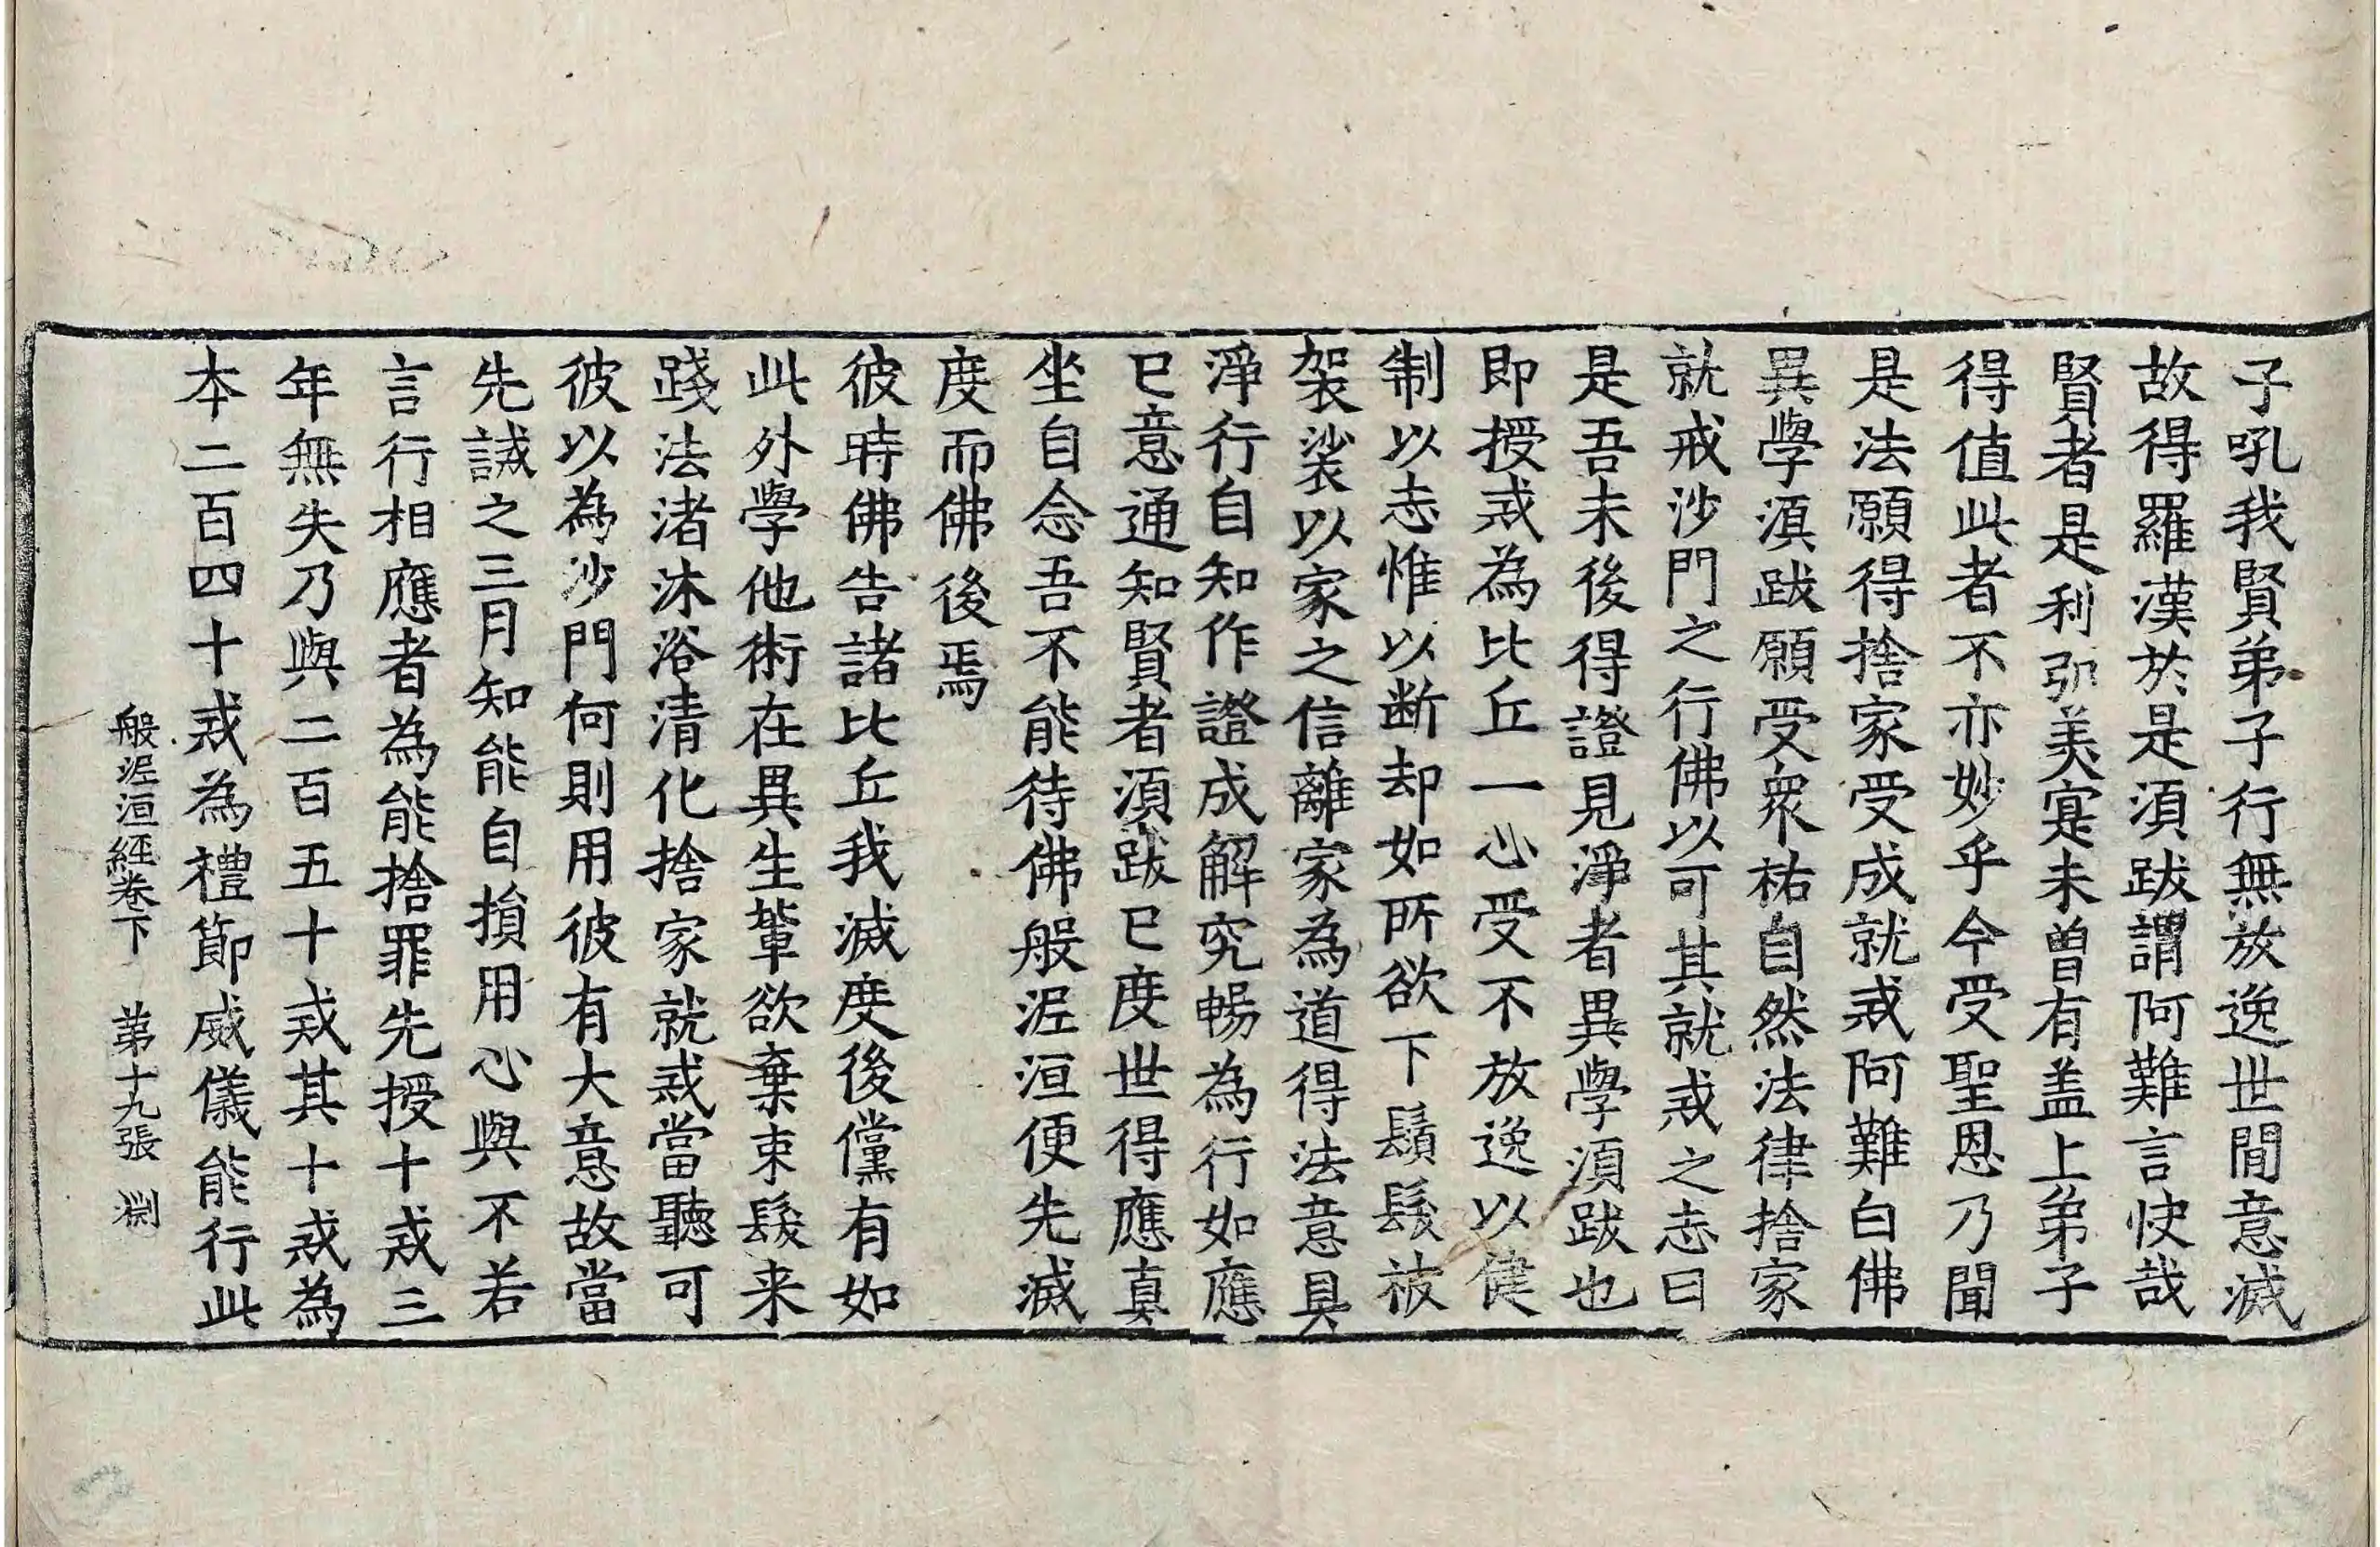 子吼我賢弟子行無放逸世間意滅
故得羅漢於是湏跋謂阿難言快哉
賢者是利弘美寔未曽有盖上弟子
得值此者不亦妙乎今受聖恩乃聞
是法願得捨家受成就戒阿難白佛
異學湏跋願受衆祐自然法律捨家
就戒沙門之行佛以可其就戒之志曰
是吾末後得證見淨者異學湏跋也
即授戒為比丘一心受不放逸以健
制以志惟以断却如所欲下鬚髮被
袈裟以家之信離家為道得法意具
淨行自知作證成解究暢為行如應
已意通知賢者湏跋已度世得應真
坐自念吾不能待佛般泥洹便先滅
度而佛後焉
彼時佛告諸比丘我滅度後儻有如
此外學他術在異生輩欲棄束髮来
踐法渚沐浴清化捨家就戒當聽可
彼以為沙門何則用彼有大意故當
先誡之三月知能自損用心與不若
言行相應者為能捨罪先授十戒三
年無失乃與二百五十戒其十戒為
本二百四十戒為禮節威儀能行此
般泥洹經卷下　第十九張　渕